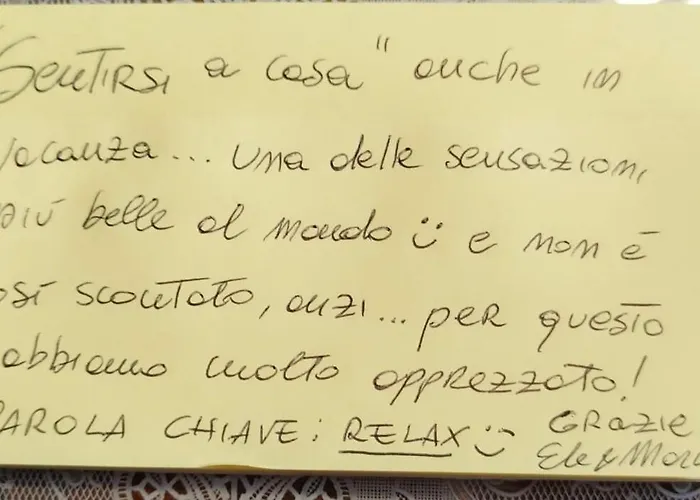 "SENTIRSI a casa" anche in
vacanza... una delle sensazioni
più belle al mondo :) e non è
così scontato, anzi... per questo
abbiamo molto apprezzato!
PAROLA CHIAVE: RELAX :) GRAZIE
Ele &